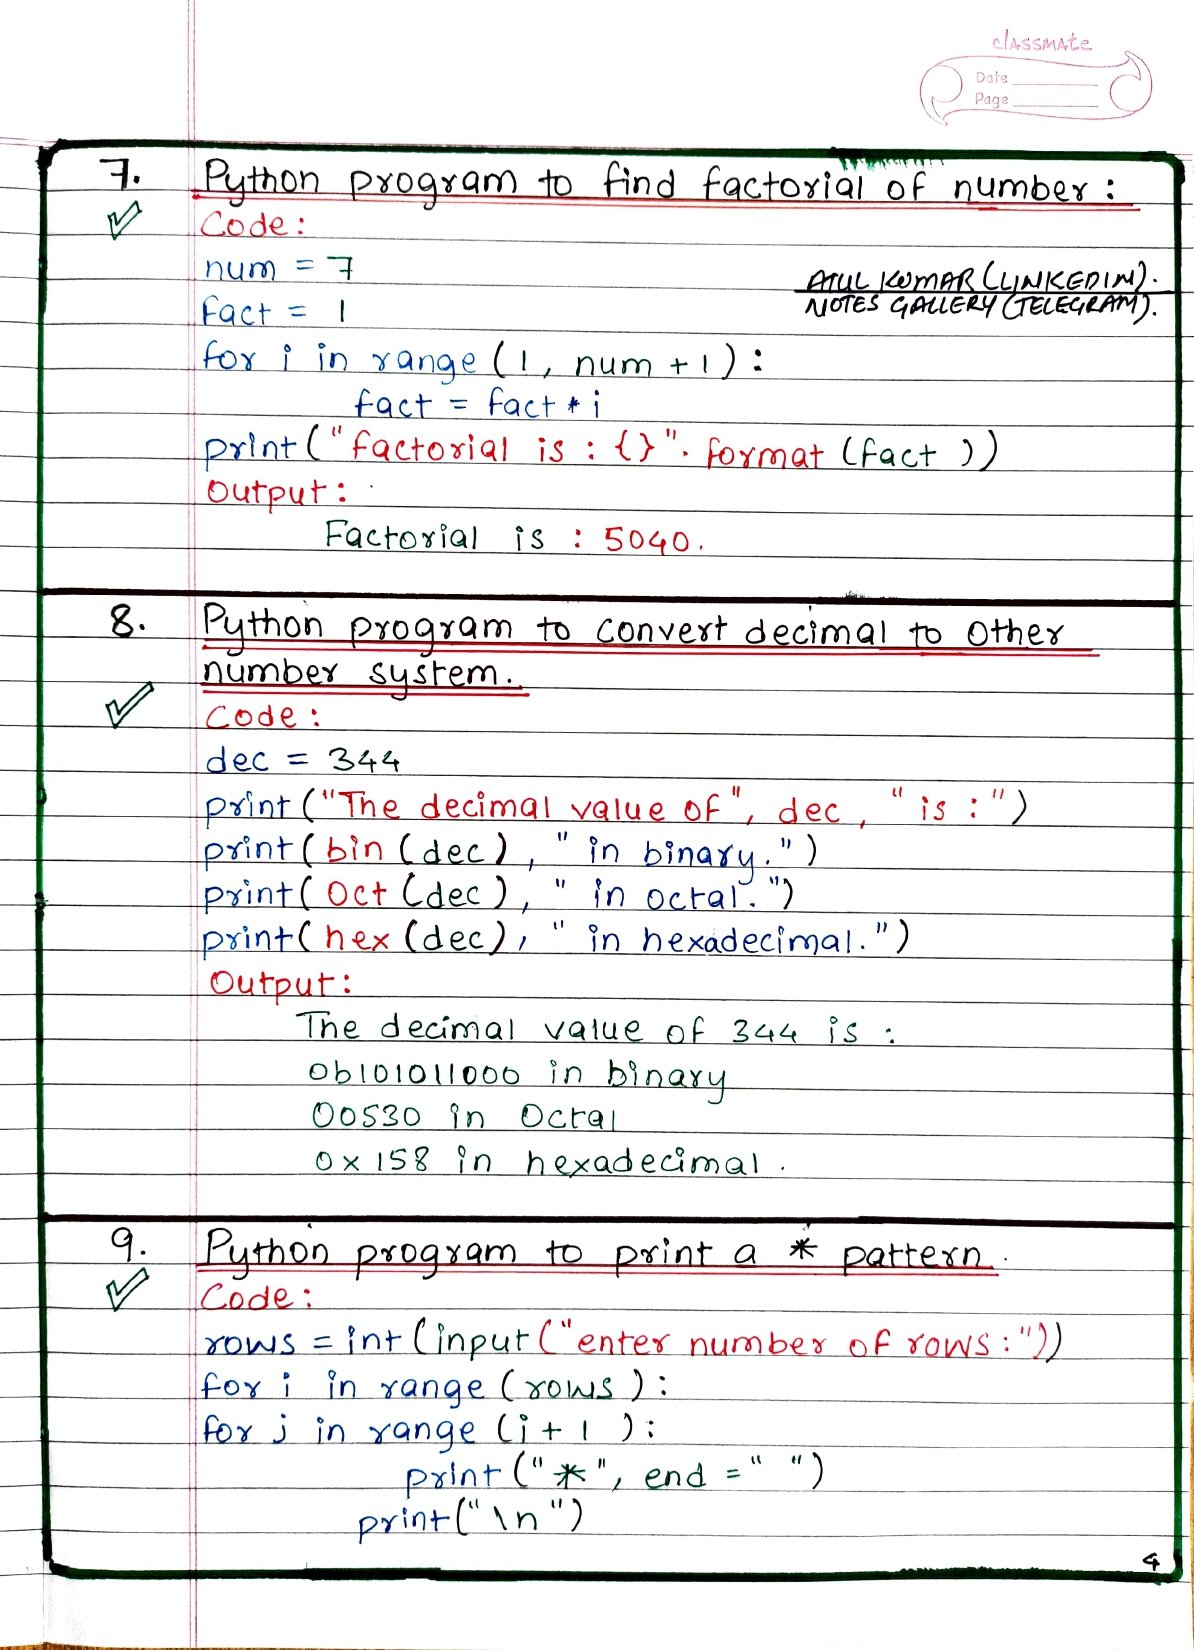 classmate
Date
Page
7. Python program to find factorial of number :
Code :
num = 7
ATUL KUMAR (LINKEDIN).
NOTES GALLERY (TELEGRAM).
fact = 1
for i in range (1, num +1) :
fact = fact * i
print ("factorial is : {}". format (fact ))
Output :
Factorial is : 5040.
8. Python program to convert decimal to Other
number system.
Code :
dec = 344
print ("The decimal value of", dec, "is :")
print ( bin (dec), " in binary.")
print( Oct (dec), " in octal.")
print( hex (dec), " in hexadecimal.")
Output :
The decimal value of 344 is :
0b101011000 in binary
00530 in Octal
0x158 in hexadecimal.
9. Python program to print a * pattern.
Code :
rows = int (input ("enter number of rows :"))
for i in range (rows ) :
for j in range (i + 1 ) :
print ("*", end =" ")
print ("\n")
4